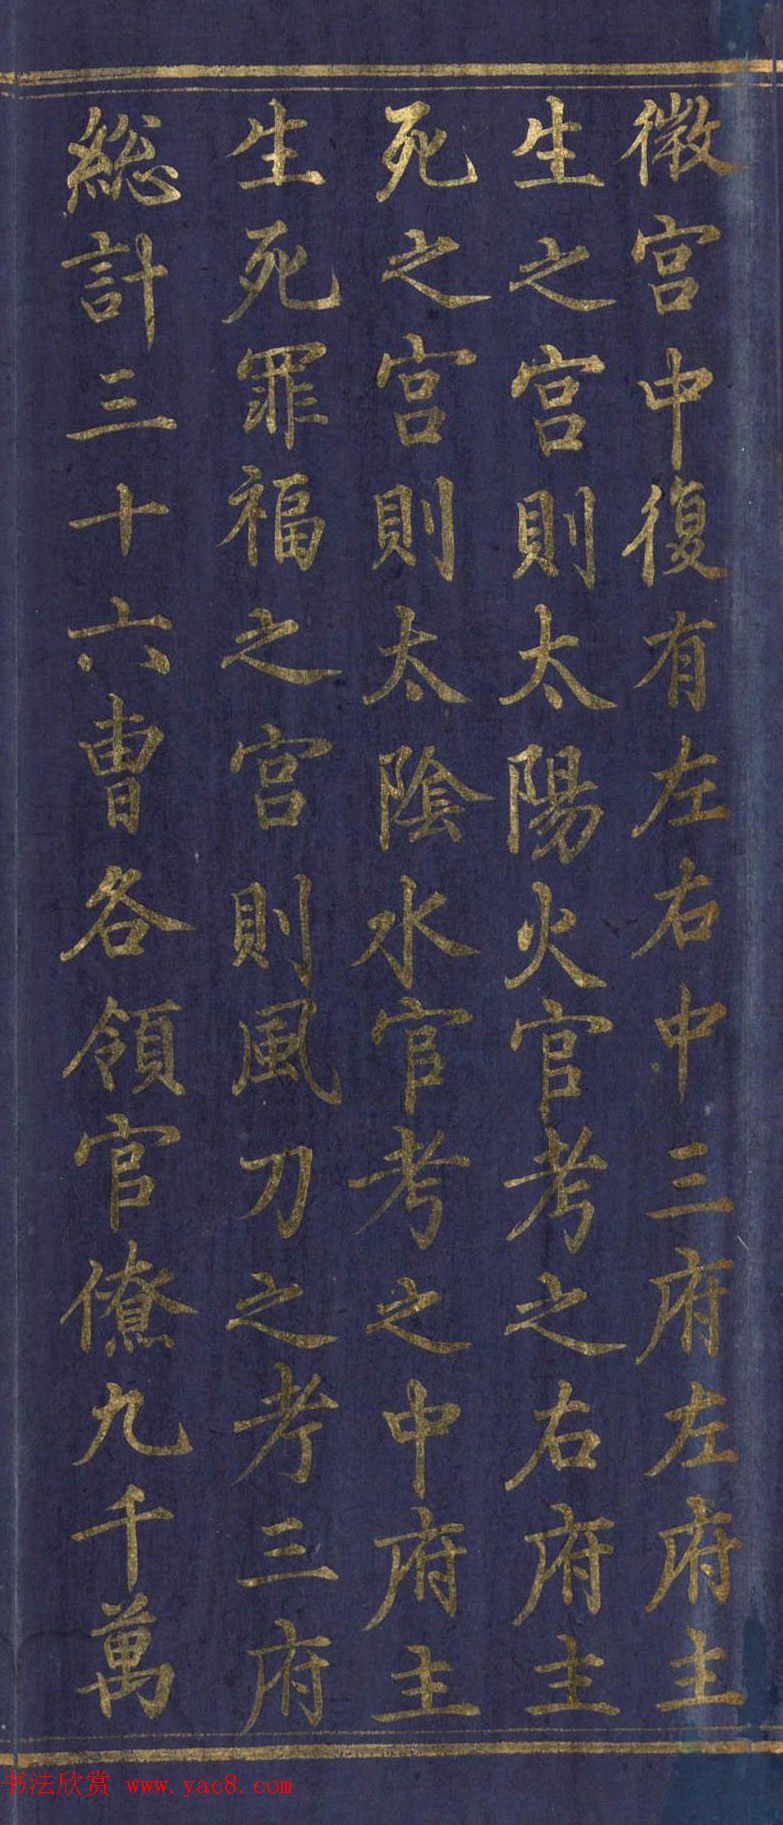 微宮中復有左右中三府左府主
生之宮則太陽火官考之右府主
死之宮則太陰水官考之中府主
生死罪福之宮則風刀之考三府
総計三十六曹各領官僚九千萬
书法欣赏 www.yac8.com